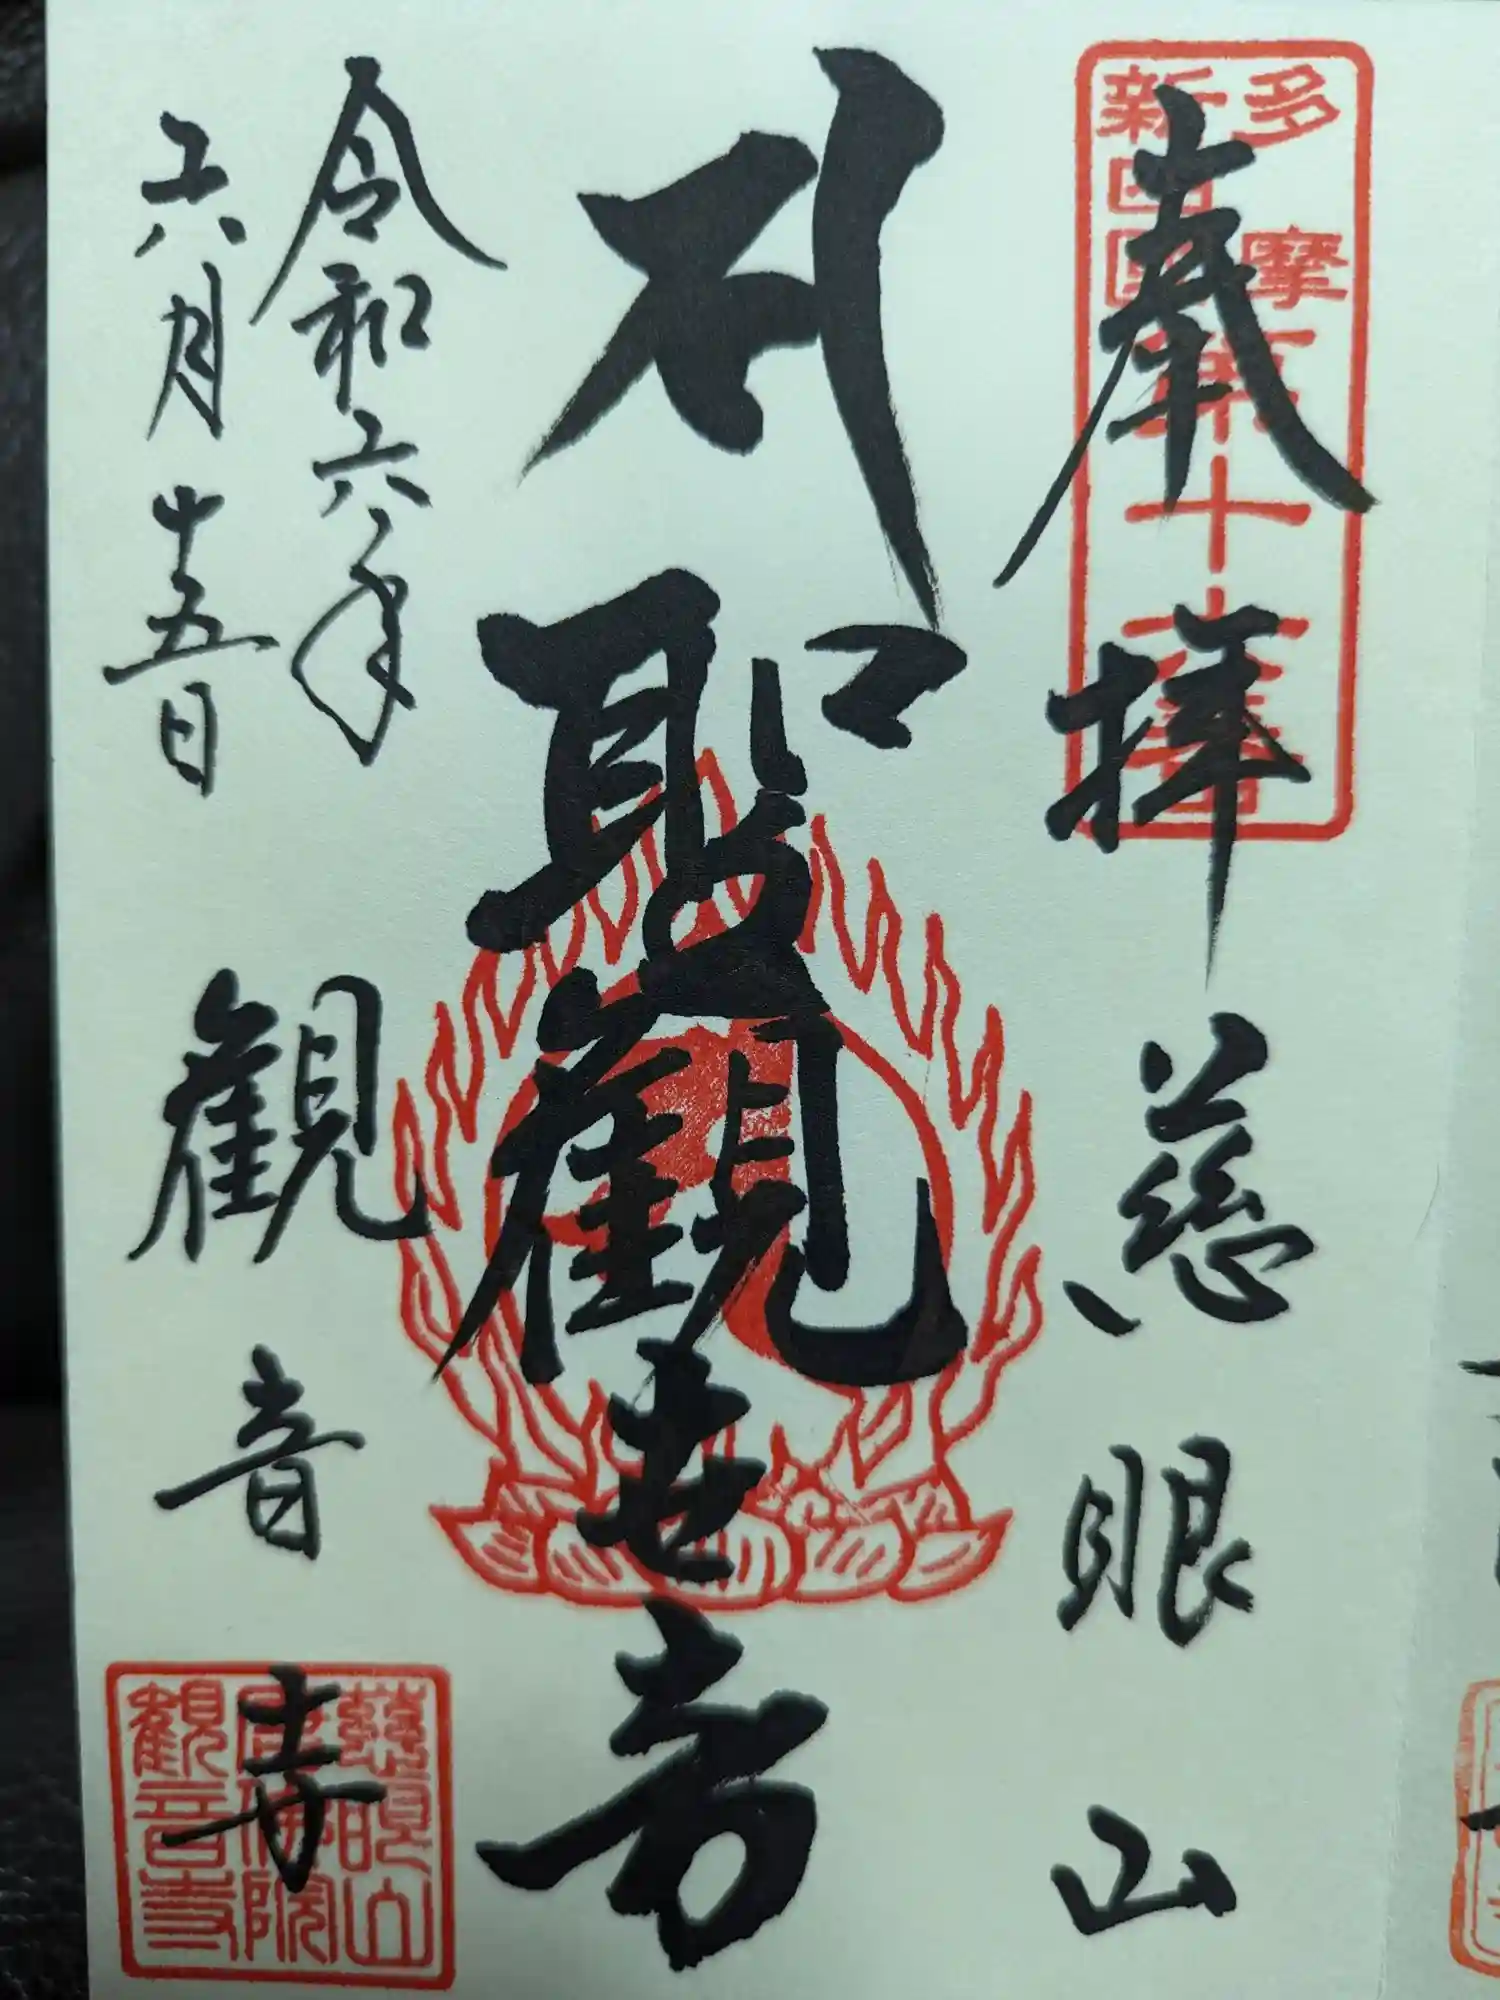 多摩
新四国
第十六番
奉拝
慈眼山
聖観世音
令和六年
六月十五日
観音寺
慈眼山
唐佛院
観音寺